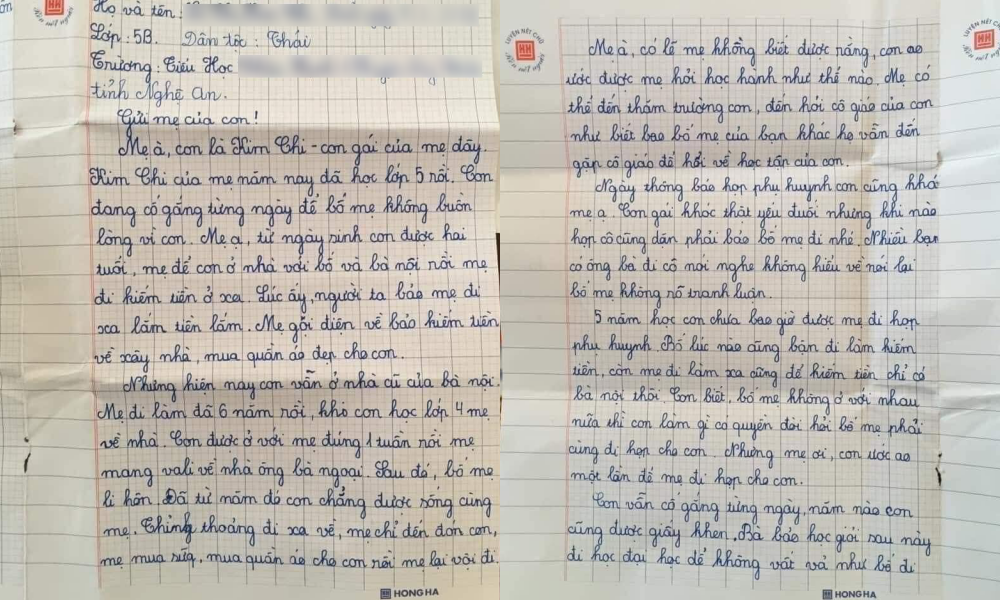 Họ và tên:
Lớp: 5B. Dân tộc: Thái
Trường: Tiểu Học
tỉnh Nghệ An.
Gửi mẹ của con!
Mẹ à, con là Kim Chi - con gái của mẹ đây.
Kim Chi của mẹ năm nay đã học lớp 5 rồi. Con
đang cố gắng từng ngày để bố mẹ không buồn
lòng vì con. Mẹ ạ, từ ngày sinh con được hai
tuổi, mẹ để con ở nhà với bố và bà nội rồi mẹ
đi kiếm tiền ở xa. Lúc ấy, người ta bảo mẹ đi
xa lắm tiền lắm. Mẹ gọi điện về bảo kiếm tiền
về xây nhà, mua quần áo đẹp cho con.
Nhưng hiện nay con vẫn ở nhà cũ của bà nội.
Mẹ đi làm đã 6 năm rồi, khi con học lớp 4 mẹ
về nhà. Con được ở với mẹ đúng 1 tuần rồi mẹ
mang vali về nhà ông bà ngoại. Sau đó, bố mẹ
li hôn. Đã từ năm đó con chẳng được sống cùng
mẹ. Thỉnh thoảng đi xa về, mẹ chỉ đến đón con,
mẹ mua sữa, mua quần áo cho con rồi mẹ lại vội đi.
HONG HA
LUYỆN NÉT CHỮ
Rèn nết người
Mẹ à, có lẽ mẹ không biết được rằng, con ao
ước được mẹ hỏi học hành như thế nào. Mẹ có
thể đến thăm trường con, đến hỏi cô giáo của con
như biết bao bố mẹ của bạn khác họ vẫn đến
gặp cô giáo để hỏi về học tấn của con.
Ngày thông báo họp phụ huynh con cũng khó
mẹ ạ. Con gái khóc thật yếu đuối nhưng khi nào
họp cô cũng dặn phải bảo bố mẹ đi nhé. Nhiều bạn
có ông bà đi cô nói nghe không hiểu về nói lại
bố mẹ không rõ tranh luận.
5 năm học con chưa bao giờ được mẹ đi họp
phụ huynh. Bố lúc nào cũng bận đi làm kiếm
tiền, còn mẹ đi làm xa cũng để kiếm tiền chỉ có
bà nội thôi. Con biết, bố mẹ không ở với nhau
nữa thì con làm gì có quyền đòi hỏi bố mẹ phải
cùng đi họp cho con. Nhưng mẹ ơi, con ước ao
một lần để mẹ đi họp cho con.
Con vẫn cố gắng từng ngày, năm nào con
cũng được giấy khen. Bà bảo học giỏi sau này
đi học đại học để không vất vả như bố đi
HONG HA